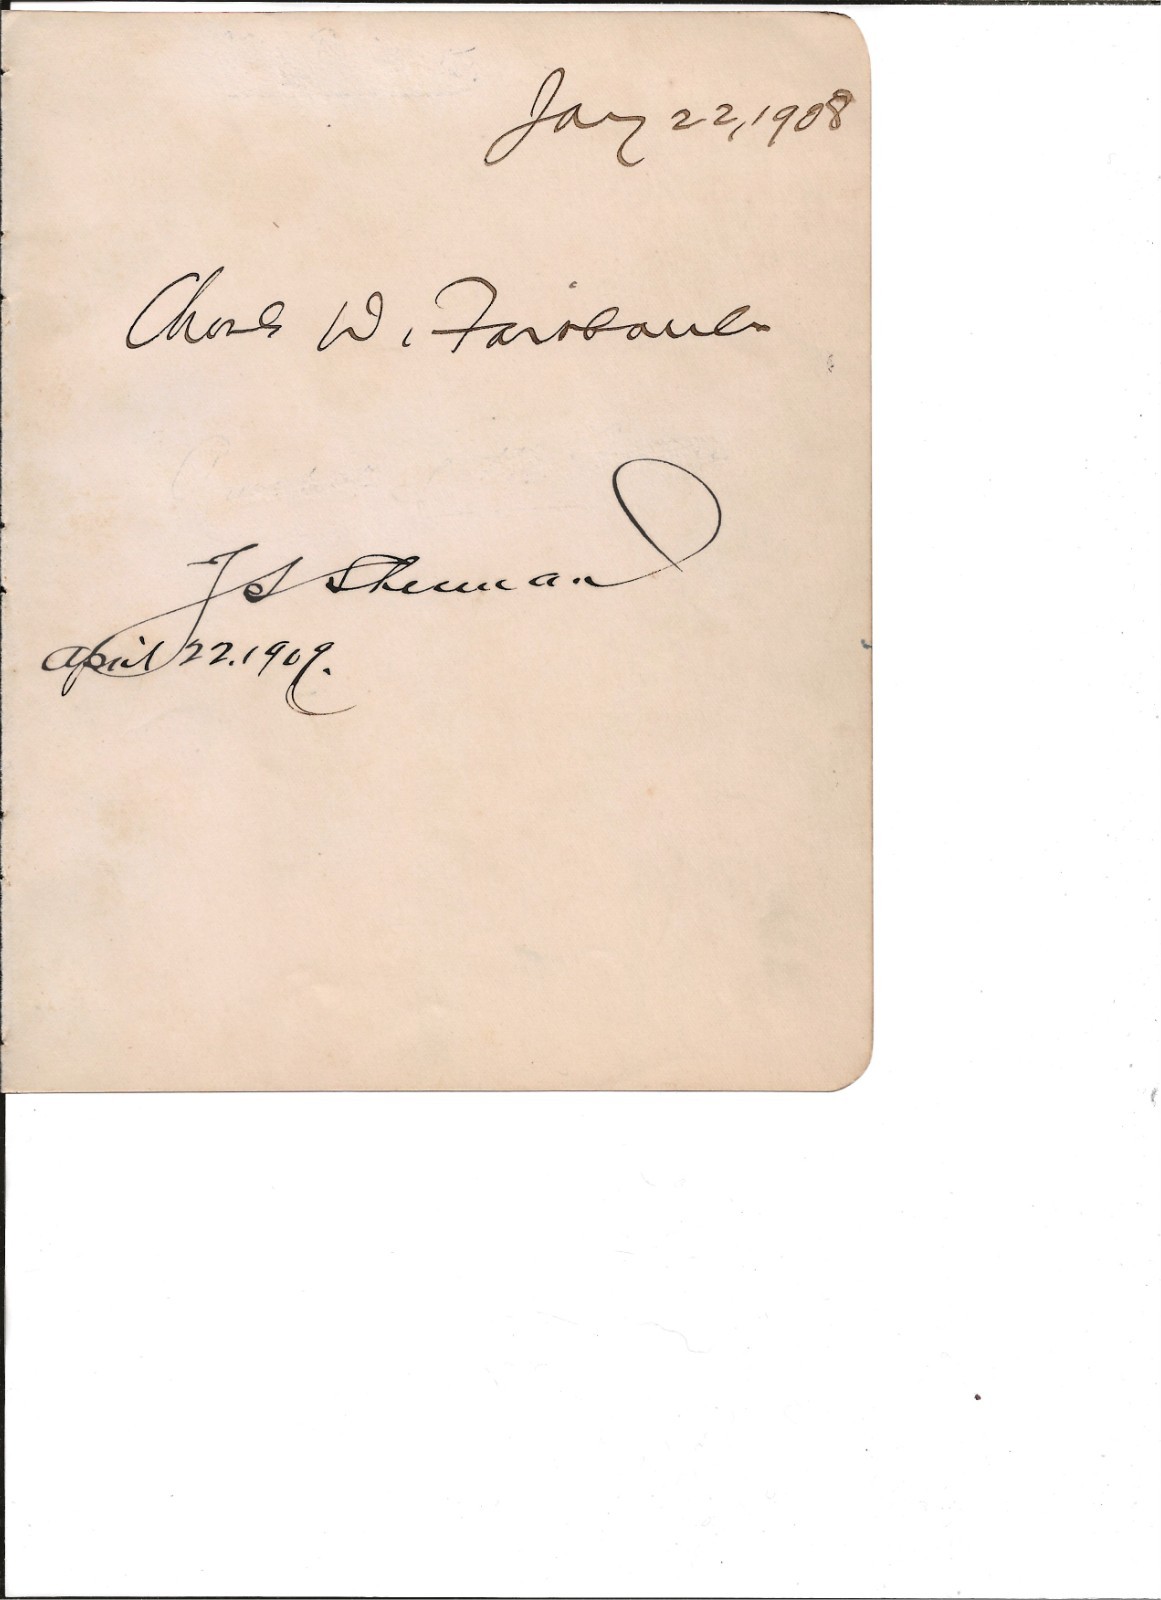 Jany 22, 1908
Charles W. Fairbanks
J S Sherman
April 22. 1909.